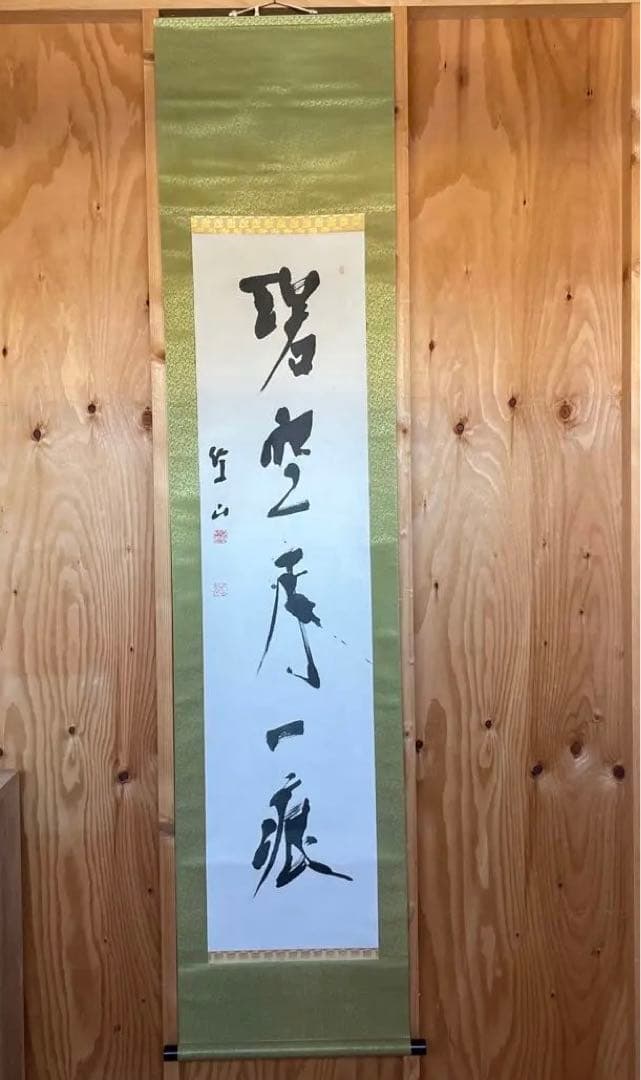 碧空秀一痕
山